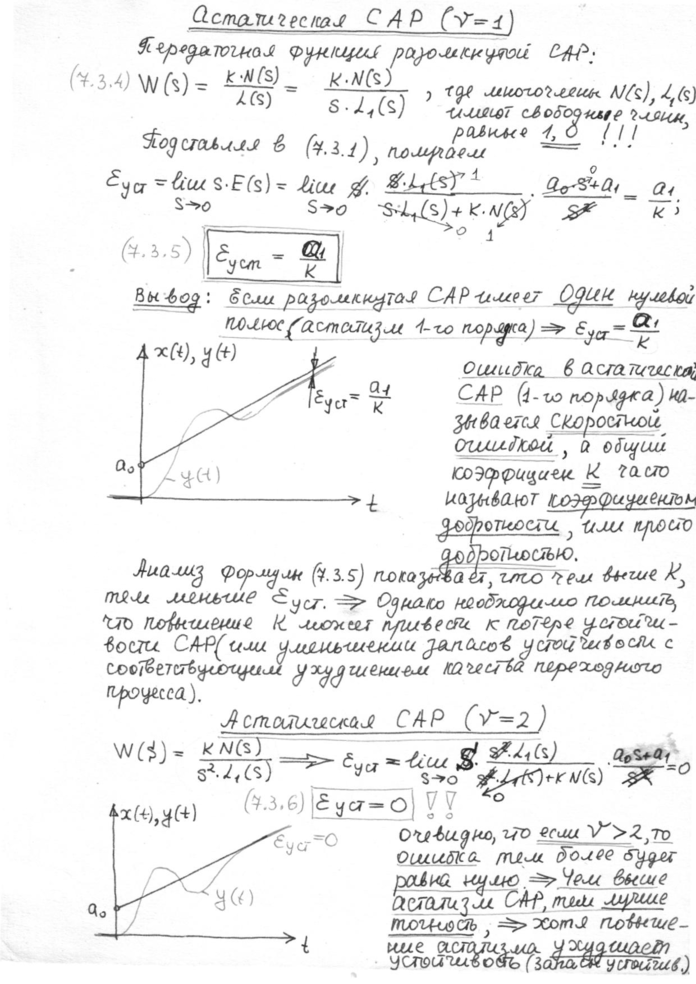 Астатическая САР (ν=1)
Передаточная функция разомкнутой САР:
(7.3.4) W(s) = K·N(s)/L(s) = K·N(s)/(s·L₁(s)) , где многочлены N(s), L₁(s)
имеют свободные члены,
равные 1,0 !!!
Подставляя в (7.3.1), получаем
εуст = lim s·E(s) = lim s· s·L₁(s)/(s·L₁(s) + K·N(s)) · (a₀·s+a₁)/s² = a₁/K ;
s→0 s→0 1 0 0 1
(7.3.5) εуст = a₁/K
Вывод: Если разомкнутая САР имеет один нулевой
полюс (астатизм 1-го порядка) ⇒ εуст = a₁/K
x(t), y(t)
εуст = a₁/K
a₀
y(t)
t
ошибка в астатической
САР (1-го порядка) на-
зывается скоростной
ошибкой, а общий
коэффициен K часто
называют коэффициентом
добротности, или просто
добротностью.
Анализ формулы (7.3.5) показывает, что чем выше K,
тем меньше εуст. ⇒ Однако необходимо помнить,
что повышение K может привести к потере устойчи-
вости САР (или уменьшении запасов устойчивости с
соответствующим ухудшением качества переходного
процесса).
Астатическая САР (ν=2)
W(s) = K N(s)/(s²·L₁(s)) ⇒ εуст = lim s· s²·L₁(s)/(s²·L₁(s)+K N(s)) · (a₀s+a₁)/s² = 0
s→0 0
(7.3.6) εуст = 0 !!
x(t), y(t)
εуст=0
a₀
y(t)
t
очевидно, что если ν>2, то
ошибка тем более будет
равна нулю ⇒ Чем выше
астатизм САР, тем лучше
точность, ⇒ хотя повыше-
ние астатизма ухудшает
устойчивость (запасы устойчив.)